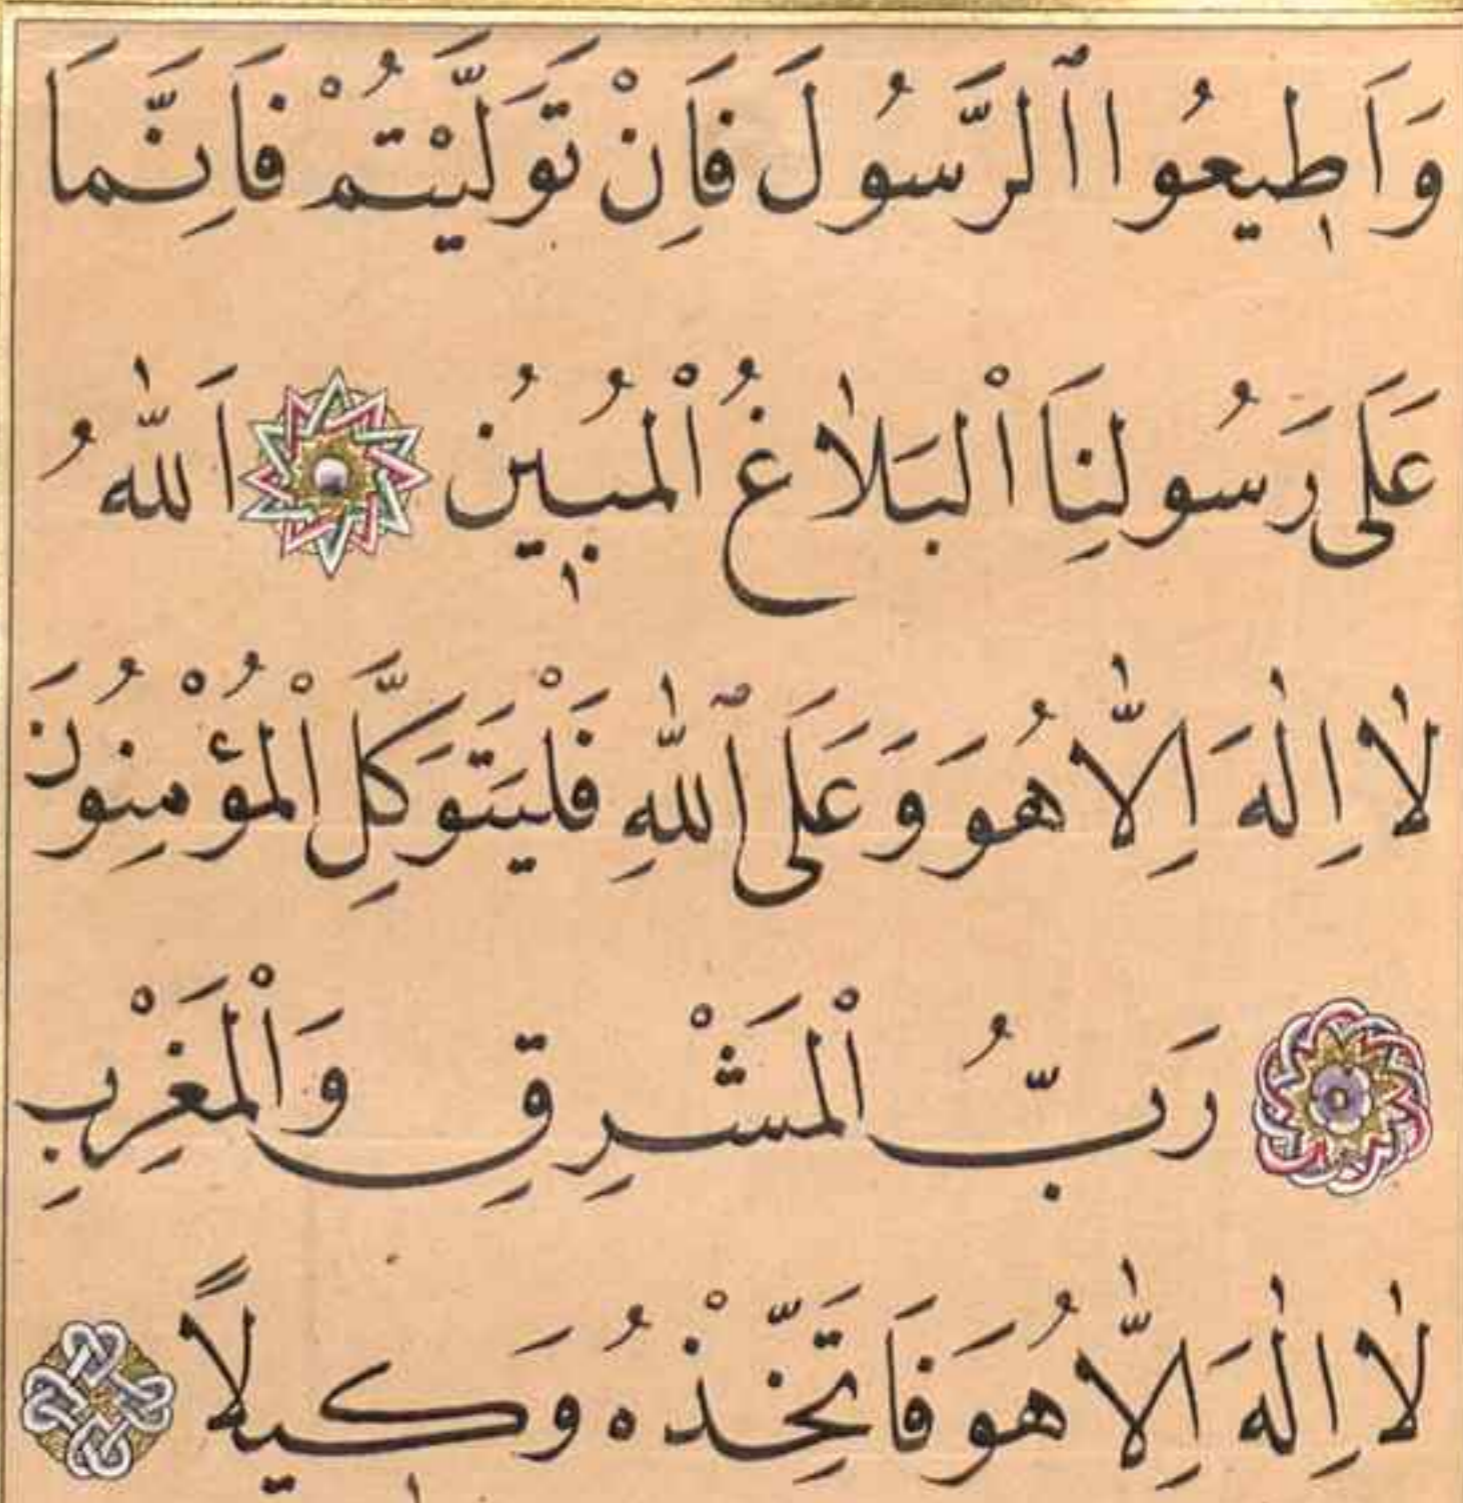 وَاَطٖيعُوا ٱلرَّسُولَ فَاِنْ تَوَلَّيْتُمْ فَاِنَّمَا
عَلَى رَسُولِنَا اْلبَلاٰغُ اْلمُبٖينُ اَللّٰهُ
لاٰ اِلٰهَ اِلاّٰ هُوَ وَعَلَى ٱللّٰهِ فَلْيَتَوَكَّلِ اْلمُؤْمِنُونَ
رَبُّ اْلمَشْرِقِ وَاْلمَغْرِبِ
لاٰ اِلٰهَ اِلاّٰ هُوَ فَاتَّخِذْهُ وَكٖيلاً